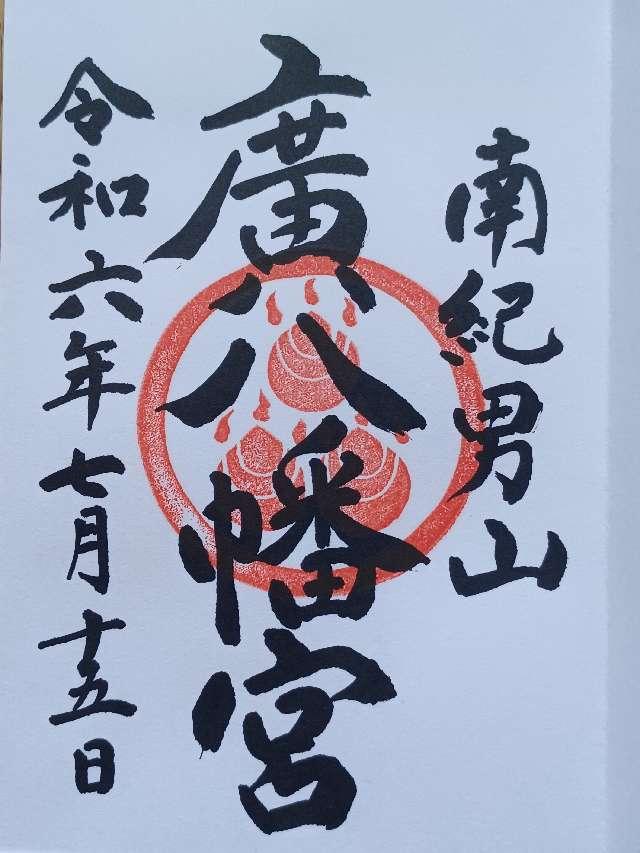 南紀男山
廣八幡宮
令和六年七月十五日